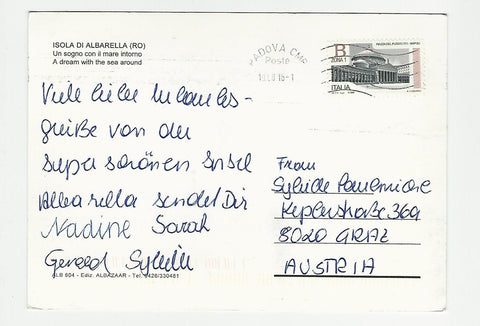 ISOLA DI ALBARELLA (RO)
Un sogno con il mare intorno
A dream with the sea around
PADOVA CMP
Poste
B
ZONA 1
ITALIA
Viele liebe Urlaubs-
grüße von der
super schönen Insel
Albarella sendet Dir
Nadine Sarah
Gerald Sybille
Frau
Sybille
Keplerstraße
8020 GRAZ
AUSTRIA
ALB 604 - Ediz. ALBAZAAR - Tel. 0426/330481